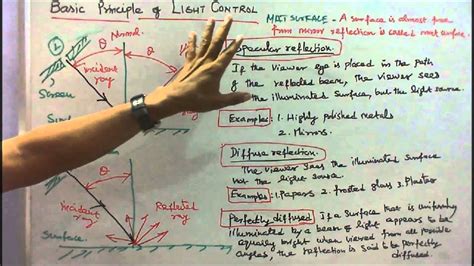 Basic Principle of LIGHT CONTROL
MATT SURFACE - A surface is almost free
from mirror reflection is called matt surface.
L
Normal
θ
θ
incident
ray
Screen
Specular reflection.
If the viewer eye is placed in the path
of the reflected beam, the viewer sees
the illuminated surface, but the light source.
Examples: 1. Highly polished metals
2. Mirrors.
Diffuse reflection.
The viewer sees the illuminated surface
not the light source.
Examples 1. Papers 2. Frosted glass 3. Plaster
θ
Incident
Ray
Reflected
ray
Surface.
Perfectly diffused. If a surface that is uniformly
illuminated by a beam of light appears to be
equally bright when viewed from all possible
angles, the reflection is said to be perfectly
diffused.